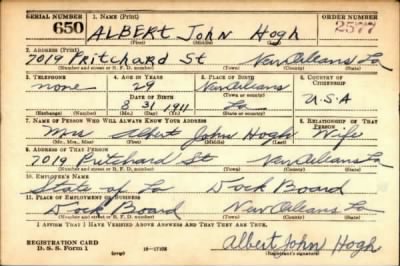 SERIAL NUMBER 1. NAME (Print) ORDER NUMBER
650 ALBERT John Hogh 2577
(First) (Middle) (Last)
2. ADDRESS (Print)
7019 Pritchard St New Orleans La
(Number and street or R. F. D. number) (Town) (County) (State)
3. TELEPHONE 4. AGE IN YEARS 5. PLACE OF BIRTH 6. COUNTRY OF CITIZENSHIP
none 29 New Orleans
DATE OF BIRTH (Town or county)
8 31 1911 La U.S.A
(Exchange) (Number) (Mo.) (Day) (Yr.) (State or country)
7. NAME OF PERSON WHO WILL ALWAYS KNOW YOUR ADDRESS 8. RELATIONSHIP OF THAT PERSON
Mrs Albert John Hogh Wife
(Mr., Mrs., Miss) (First) (Middle) (Last)
9. ADDRESS OF THAT PERSON
7019 Pritchard St New Orleans La
(Number and street or R. F. D. number) (Town) (County) (State)
10. EMPLOYER'S NAME
State of La Dock Board
11. PLACE OF EMPLOYMENT OR BUSINESS
Dock Board New Orleans La
(Number and street or R. F. D. number) (Town) (County) (State)
I AFFIRM THAT I HAVE VERIFIED ABOVE ANSWERS AND THAT THEY ARE TRUE.
REGISTRATION CARD
D. S. S. Form 1 (over) 16-17105 Albert John Hogh
(Registrant's signature)